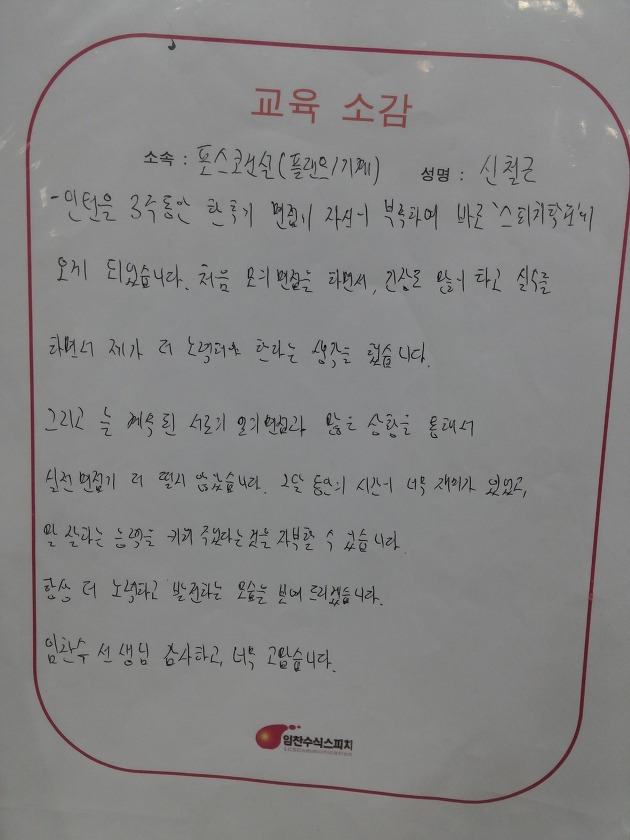 교육 소감
소속 : 포스코건설(플랜트/기계) 성명 : 신철근
- 인턴을 3주동안 한 후 면접에 자신이 부족하여 바로 '스피치학원'에
오게 되었습니다. 처음 모의면접을 하면서, 긴장도 많이 하고 실수를
하면서 제가 더 노력해야 한다는 생각을 했습니다.
그리고 늘 계속된 서로의 모의면접과 많은 상황을 통해서
실전면접가 더 떨지 않았습니다. 2달 동안의 시간이 너무 재미가 있었고,
말 잘하는 능력을 키워 주었다는것을 자부할 수 있습니다.
항상 더 노력하고 발전하는 모습을 보여 드리겠습니다.
임찬수 선생님 감사하고, 너무 고맙습니다.
임찬수식스피치